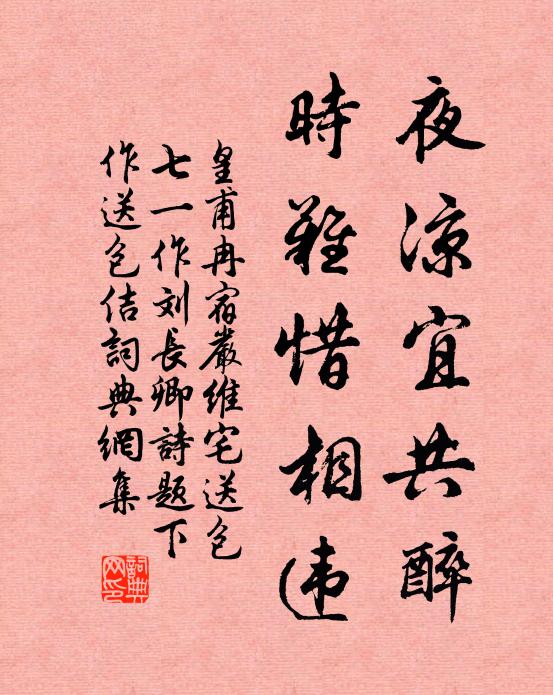 夜涼宜共醉
時難惜相违
皇甫冉宿嚴維宅送包
七一作刘長卿詩題下
作送包佶詞典網集
詞典网印